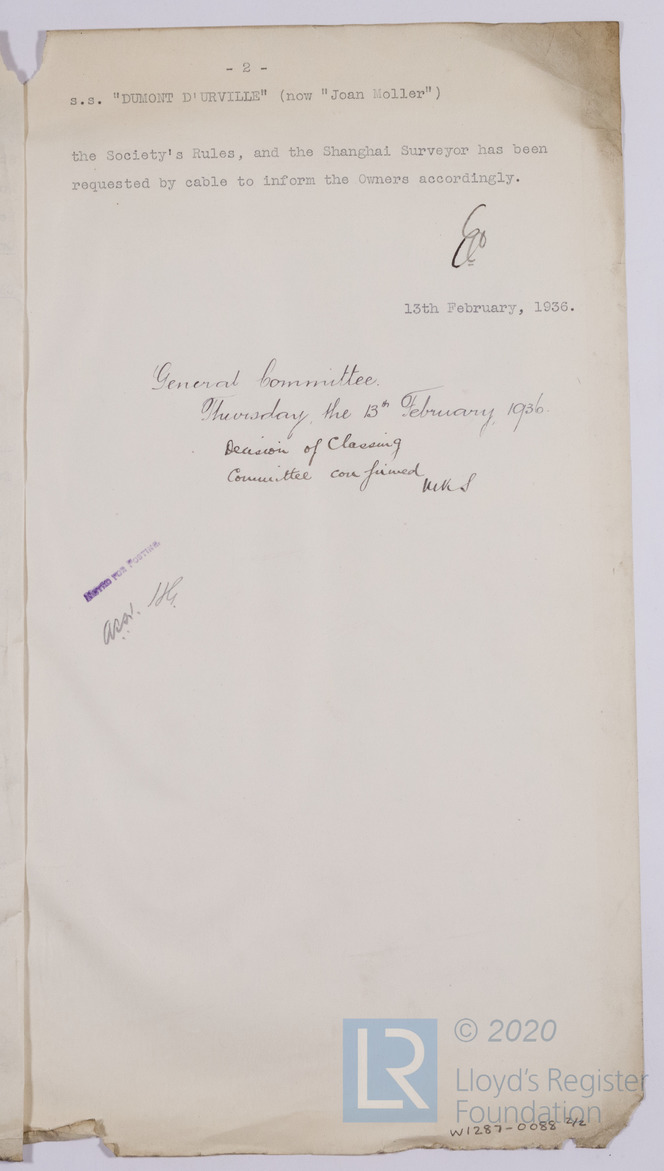 - 2 -
s.s. "DUMONT D'URVILLE" (now "Joan Moller")
the Society's Rules, and the Shanghai Surveyor has been
requested by cable to inform the Owners accordingly.
13th February, 1936.
General Committee.
Thursday, the 13th February, 1936.
Decision of Classing
Committee confirmed
NOTED FOR POSTING.
LR
© 2020
Lloyd's Register
Foundation
W1287-0088 2/2